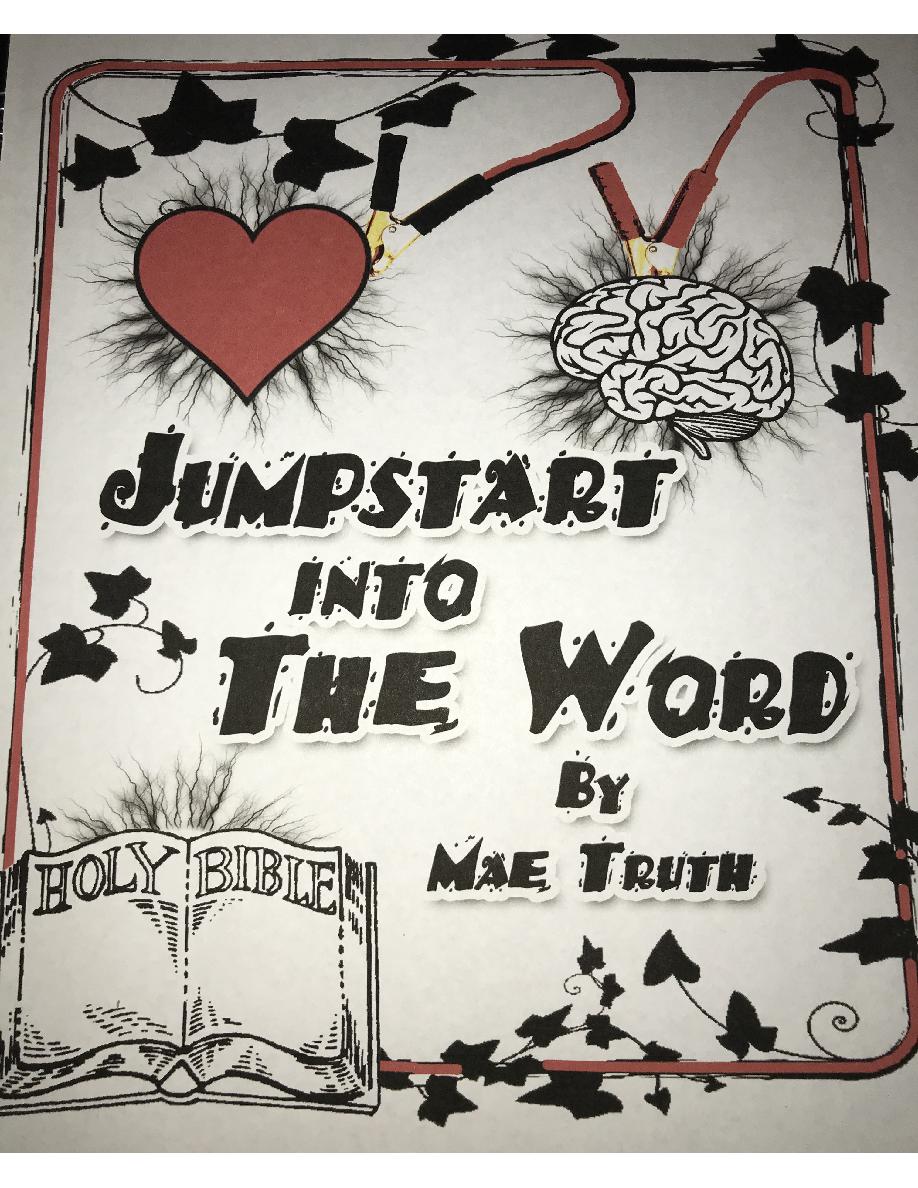 Jumpstart
into
The Word
By
Mae Truth
HOLY BIBLE